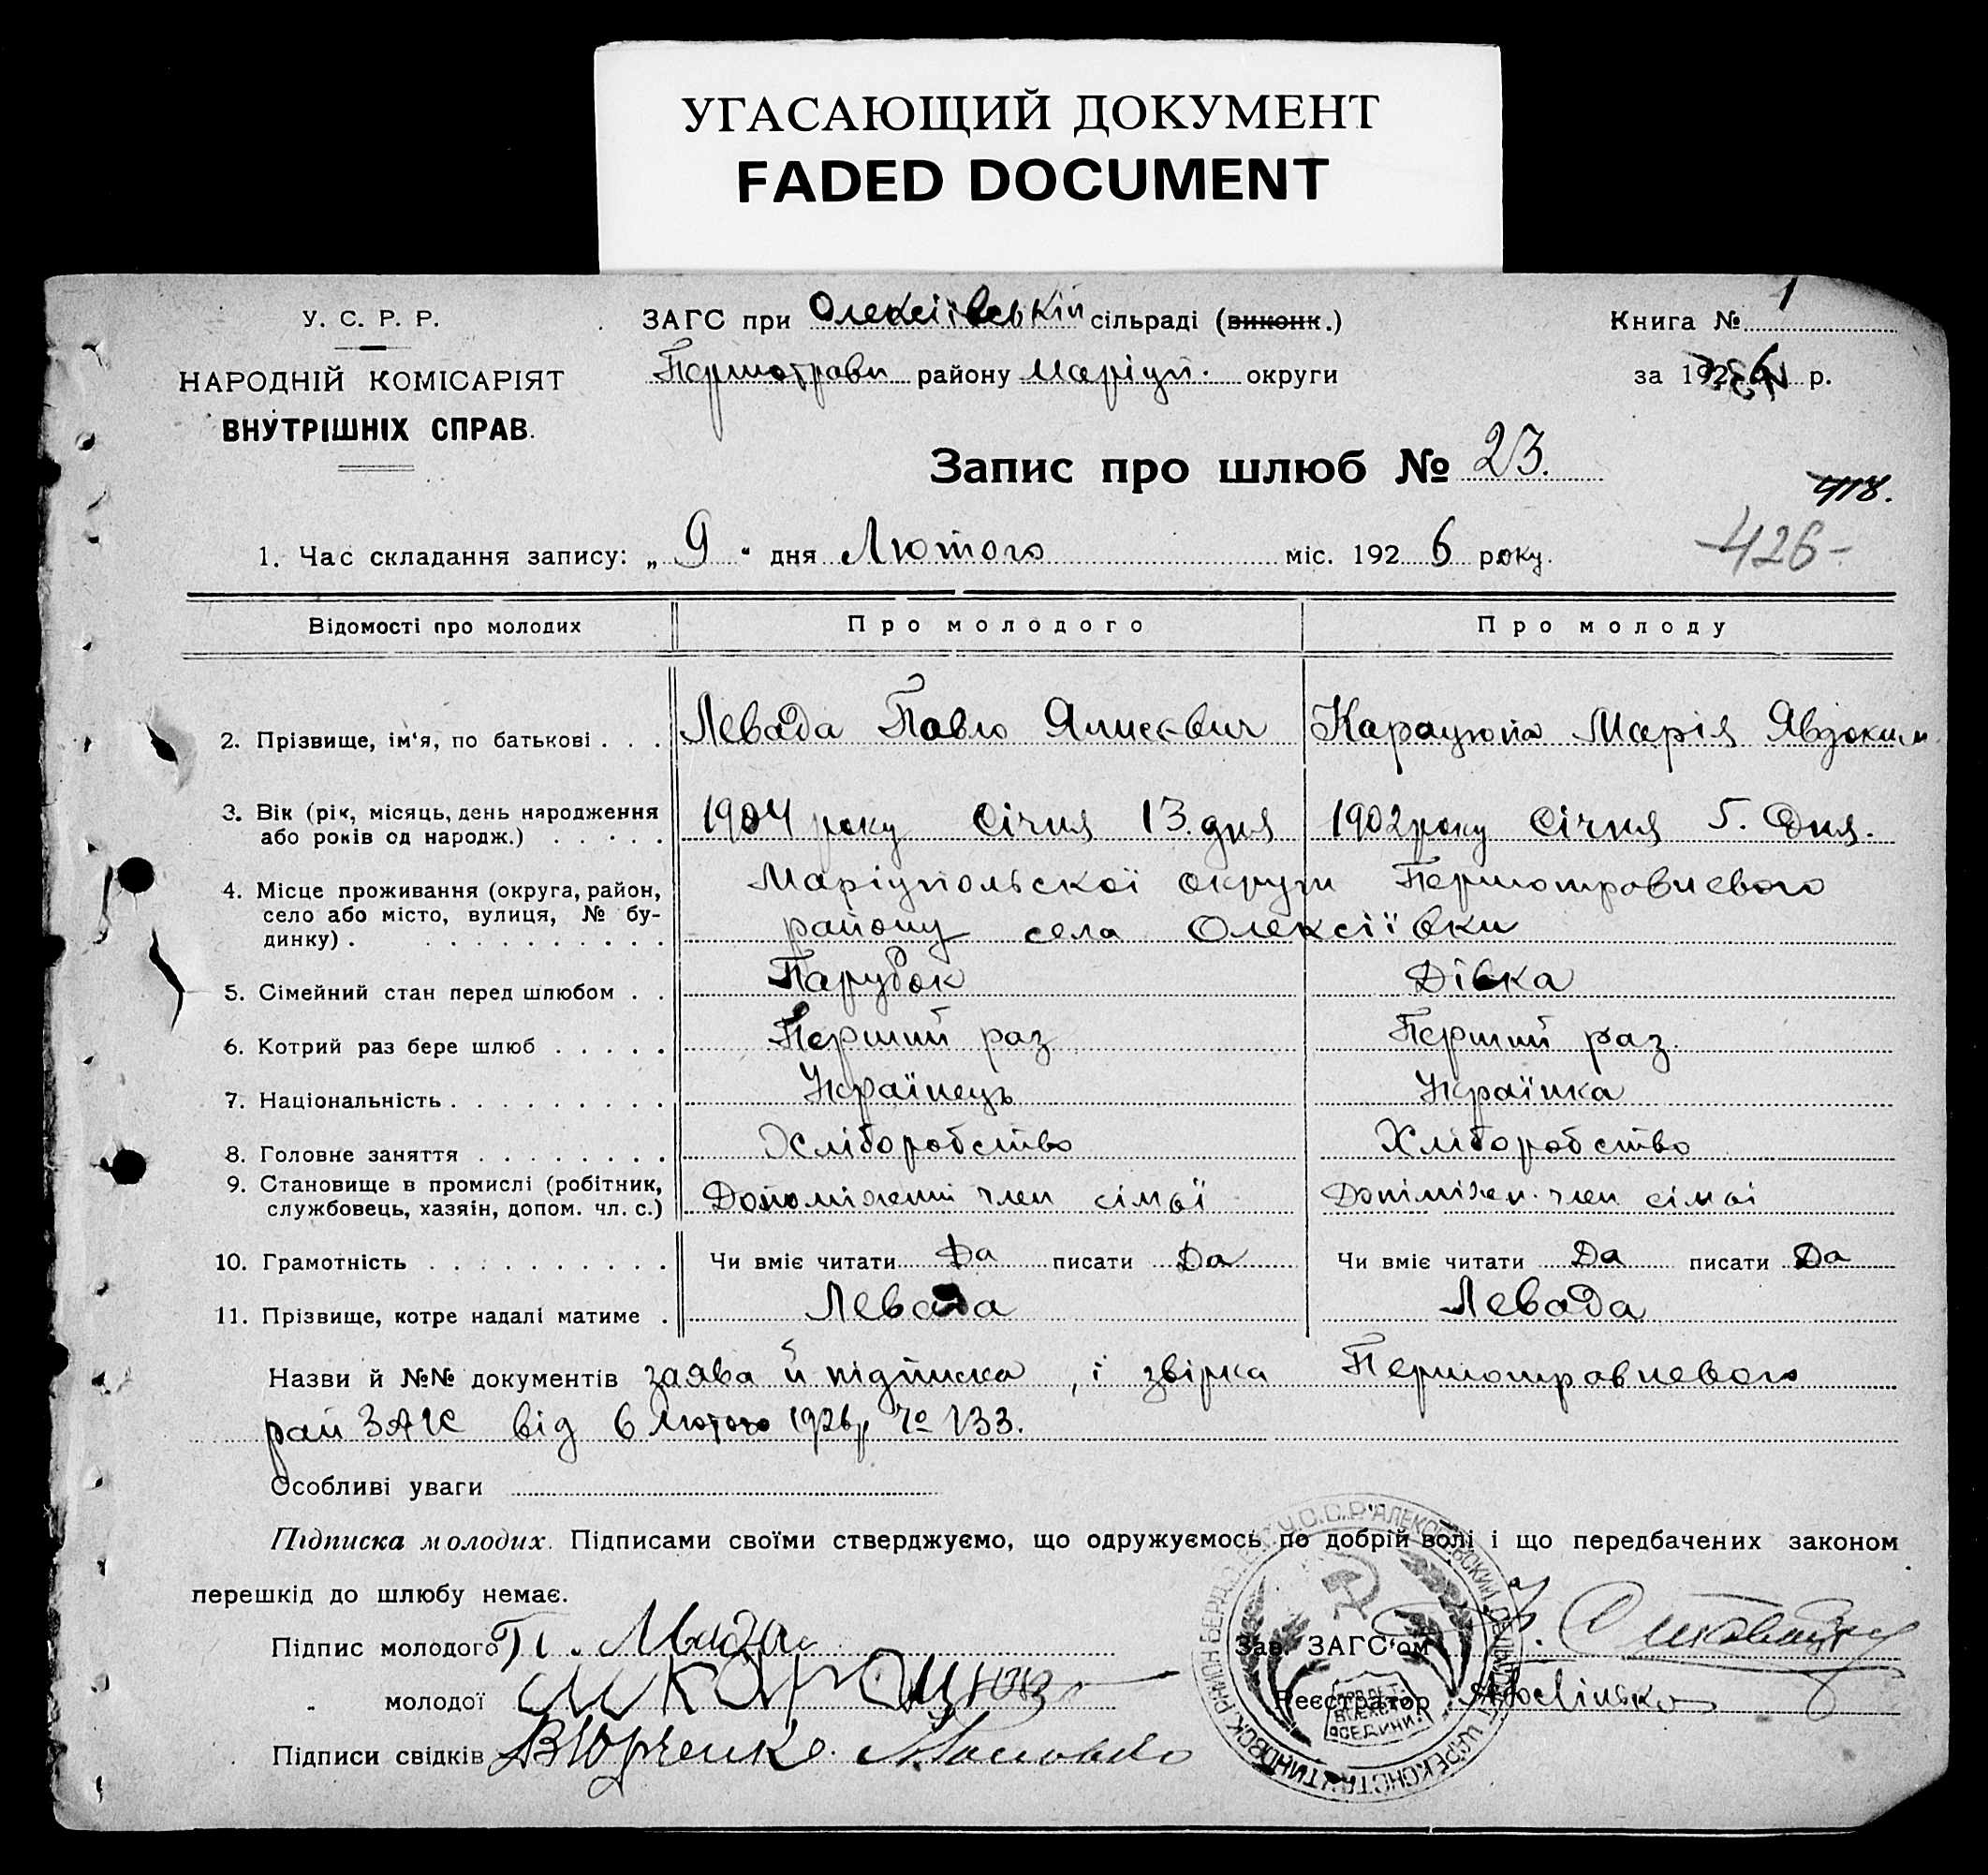 УГАСАЮЩИЙ ДОКУМЕНТ
FADED DOCUMENT
У. С. Р. Р.
НАРОДНІЙ КОМІСАРІЯТ
ВНУТРІШНІХ СПРАВ.
ЗАГС при Олексіївській сільраді (виконк.)
Першотравн району Маріуп. округи
Книга № 1
за 1926 р.
Запис про шлюб № 23.
418.
1. Час складання запису: „ 9 " дня Лютого міс. 192 6 року.
426-
Відомості про молодих Про молодого Про молоду
2. Прізвище, ім'я, по батькові . . . Левада Павло Карацюпа Марія Явдоким
3. Вік (рік, місяць, день народження
або років од народж.) . . . . . 1904 року Січня 13. дня 1902 року Січня 5. Дня.
4. Місце проживання (округа, район,
село або місто, вулиця, № бу-
динку) . . . . . . . . . . .
Маріупольскої округи Першотравневого
району села Олексіївки
5. Сімейний стан перед шлюбом . . Парубок Дівка
6. Котрий раз бере шлюб . . . . . Перший раз Перший раз.
7. Національність . . . . . . . . . Українець Українка
8. Головне заняття . . . . . . . . Хліборобство Хліборобство
9. Становище в промислі (робітник,
службовець, хазяїн, допом. чл. с.) Допоміжний член сімьї Допіміжн. член сімьі
10. Грамотність . . . . . . . . . . Чи вміє читати Да писати Да Чи вміє читати Да писати Да
11. Прізвище, котре надалі матиме . Левада Левада
Назви й №№ документів заява й підписка, і звірка Першотравневого
рай ЗАГС від 6 Лютого 1926 р № 133.
Особливі уваги
Підписка молодих. Підписами своїми стверджуємо, що одружуємось по добрій волі і що передбачених законом
перешкід до шлюбу немає.
Підпис молодого П.
Зав. ЗАГС'ом
" молодої М Карацюпа
Реєстратор
Підписи свідків В Юрченко